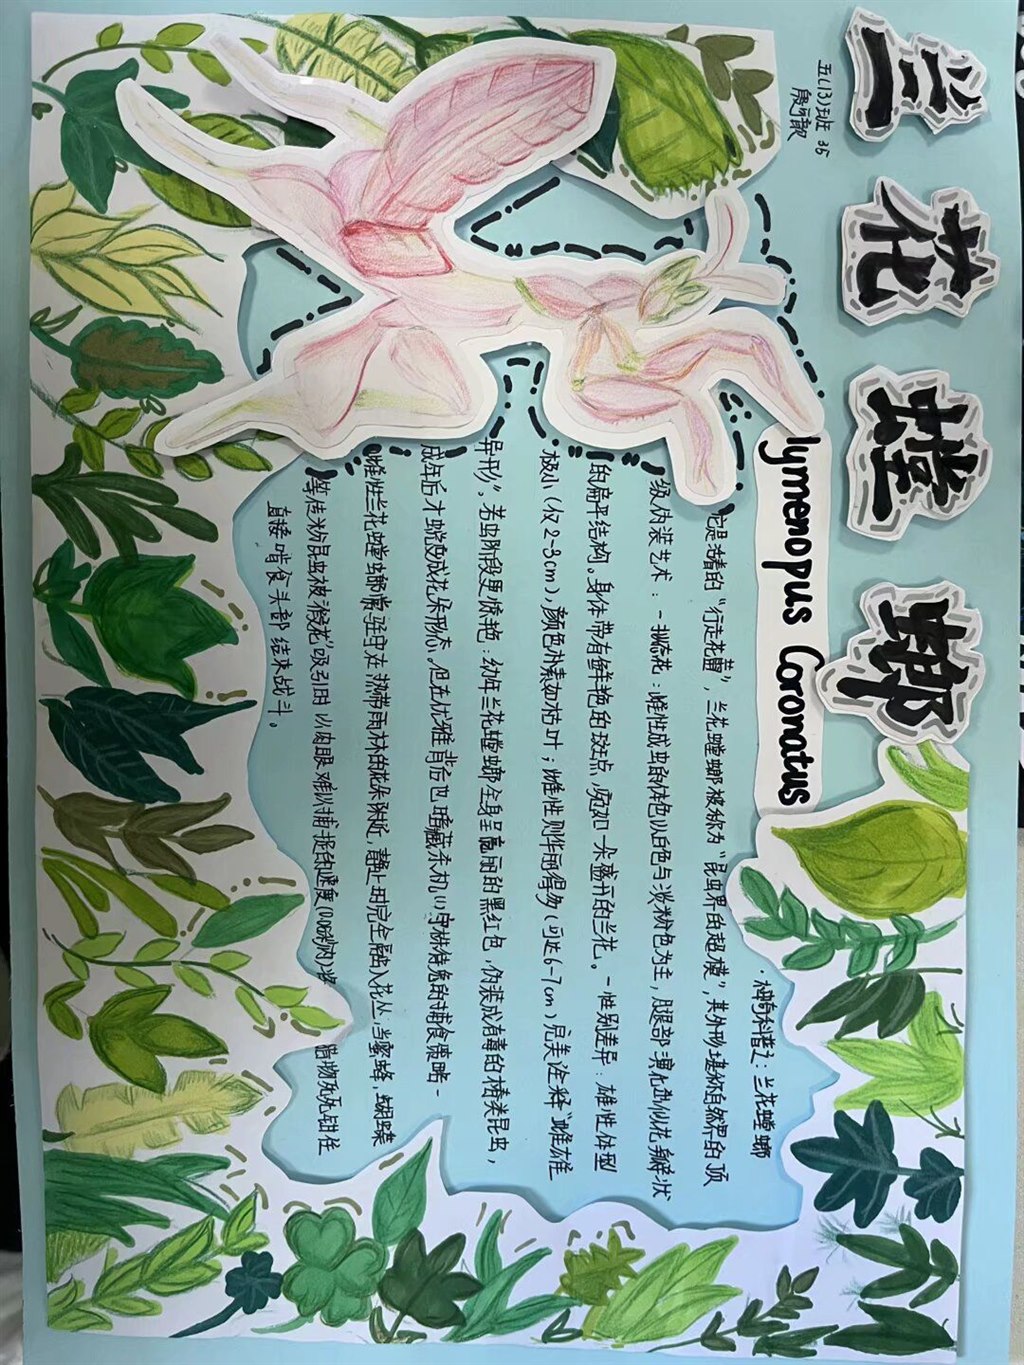 兰花螳螂
五(13)班 35
Hymenopus Coronatus
神奇科普之：兰花螳螂
它是活着的“行走花蕾”，兰花螳螂被称为“昆虫界的超模”，其外形堪称自然界的顶
级伪装艺术：-拟态花：雌性成虫的体色以白色与淡粉色为主，腿部演化出似花瓣状
的扁平结构。身体带有鲜艳的斑点，宛如一朵盛开的兰花。-性别差异：雄性体型
极小(仅2-3cm)，颜色朴素如枯叶；雌性则华丽得多(可达6-7cm)完美诠释“雌雄
异形”。若虫阶段更惊艳：幼年兰花螳螂全身呈 丽的黑红色，伪装成有毒的椿类昆虫，
成年后才蜕变成花朵形态。但在优雅背后也暗藏杀机 守株待兔的捕食策略-
雌性兰花螳螂常驻守在热带雨林的花朵附近，静止时完全融入花丛；当蜜蜂，蝴蝶
等传粉昆虫被“假花”吸引时 以肉眼难以捕捉的速度(0.06秒内)将猎物死死钳住
直接啃食头部结束战斗。